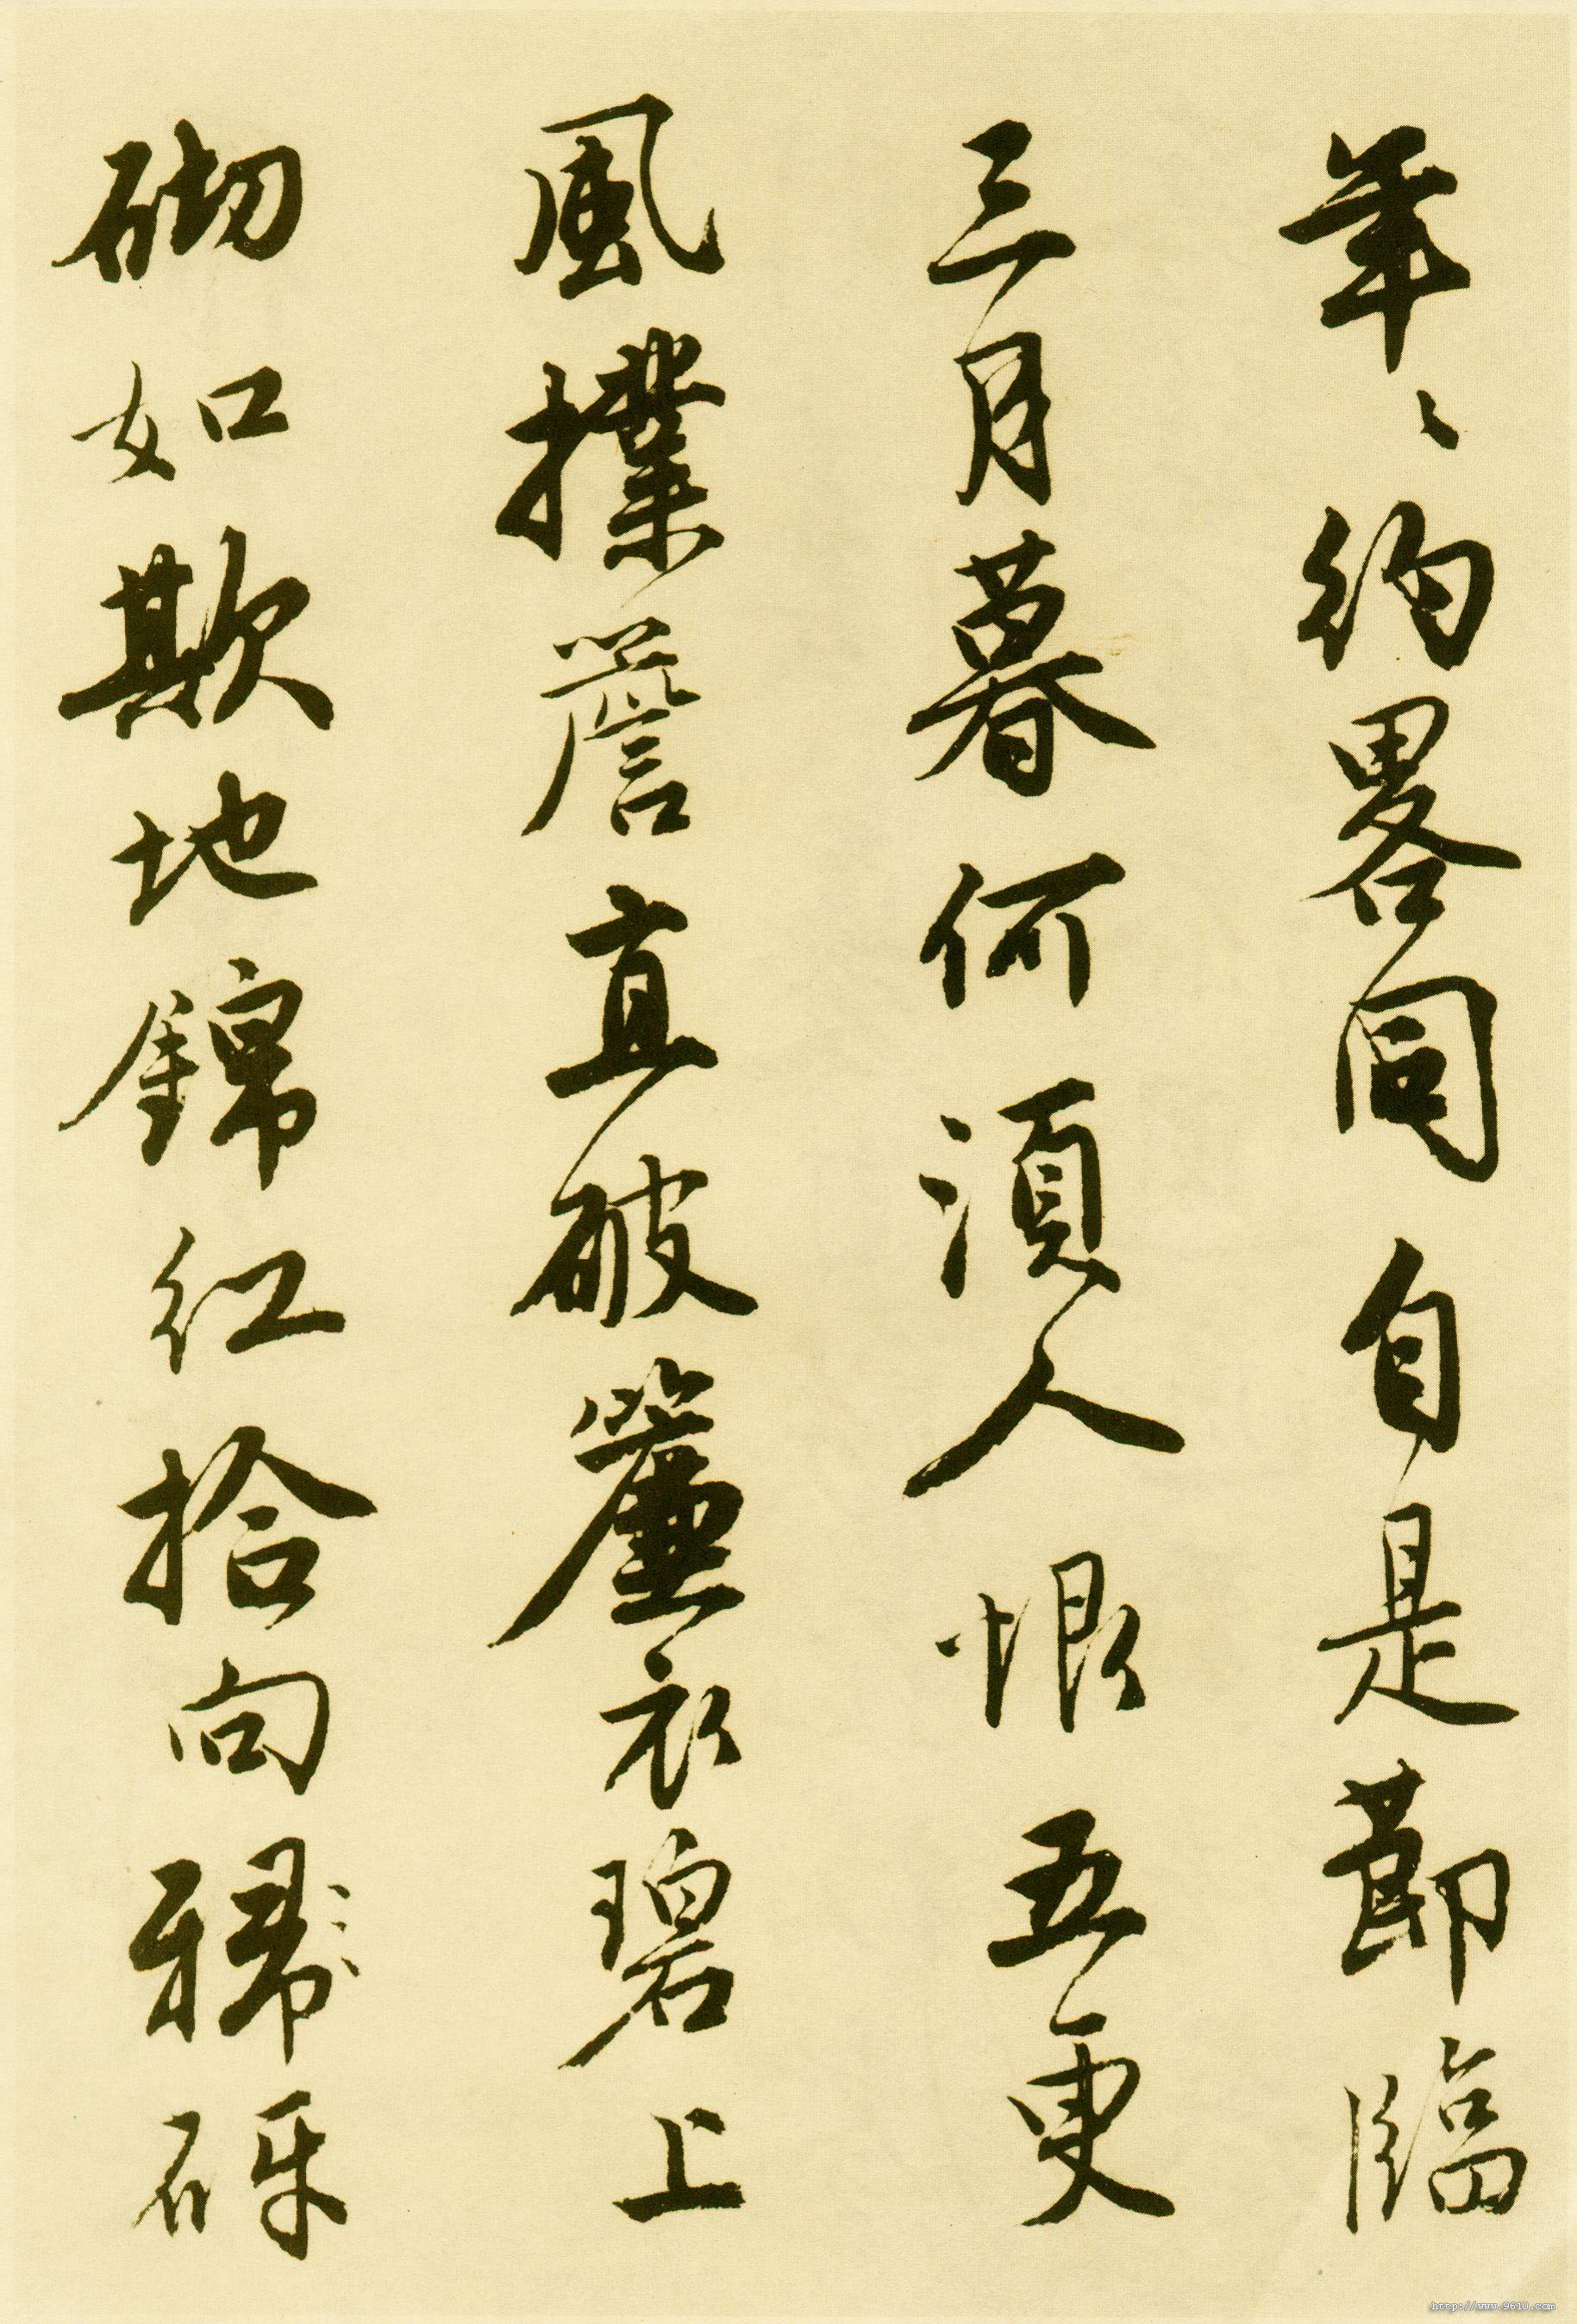 年〻約畧同自是節臨
三月暮何須人恨五更
風撲簷直破簾衣碧上
砌如欺地錦紅拾向砑
http://www.9610.com